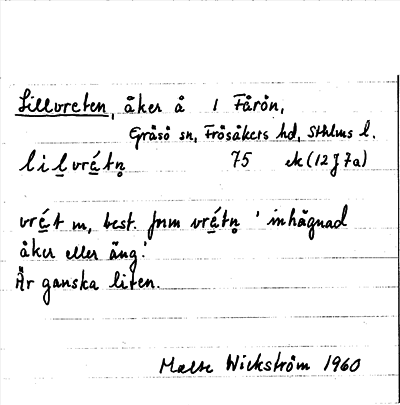 Lillvreten, åker å 1 Fårön,
Gräsö sn, Frösåkers hd, Sthlms l.
lilvrétn̥ 75 ek (12 J 7a)
vrét m, best. form vrétn̥ 'inhägnad
åker eller äng.'
Är ganska liten.
Malte Wickström 1960